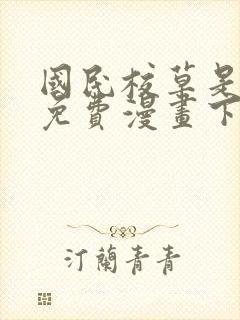 國民校草是
免費漫畫下
汀蘭青青